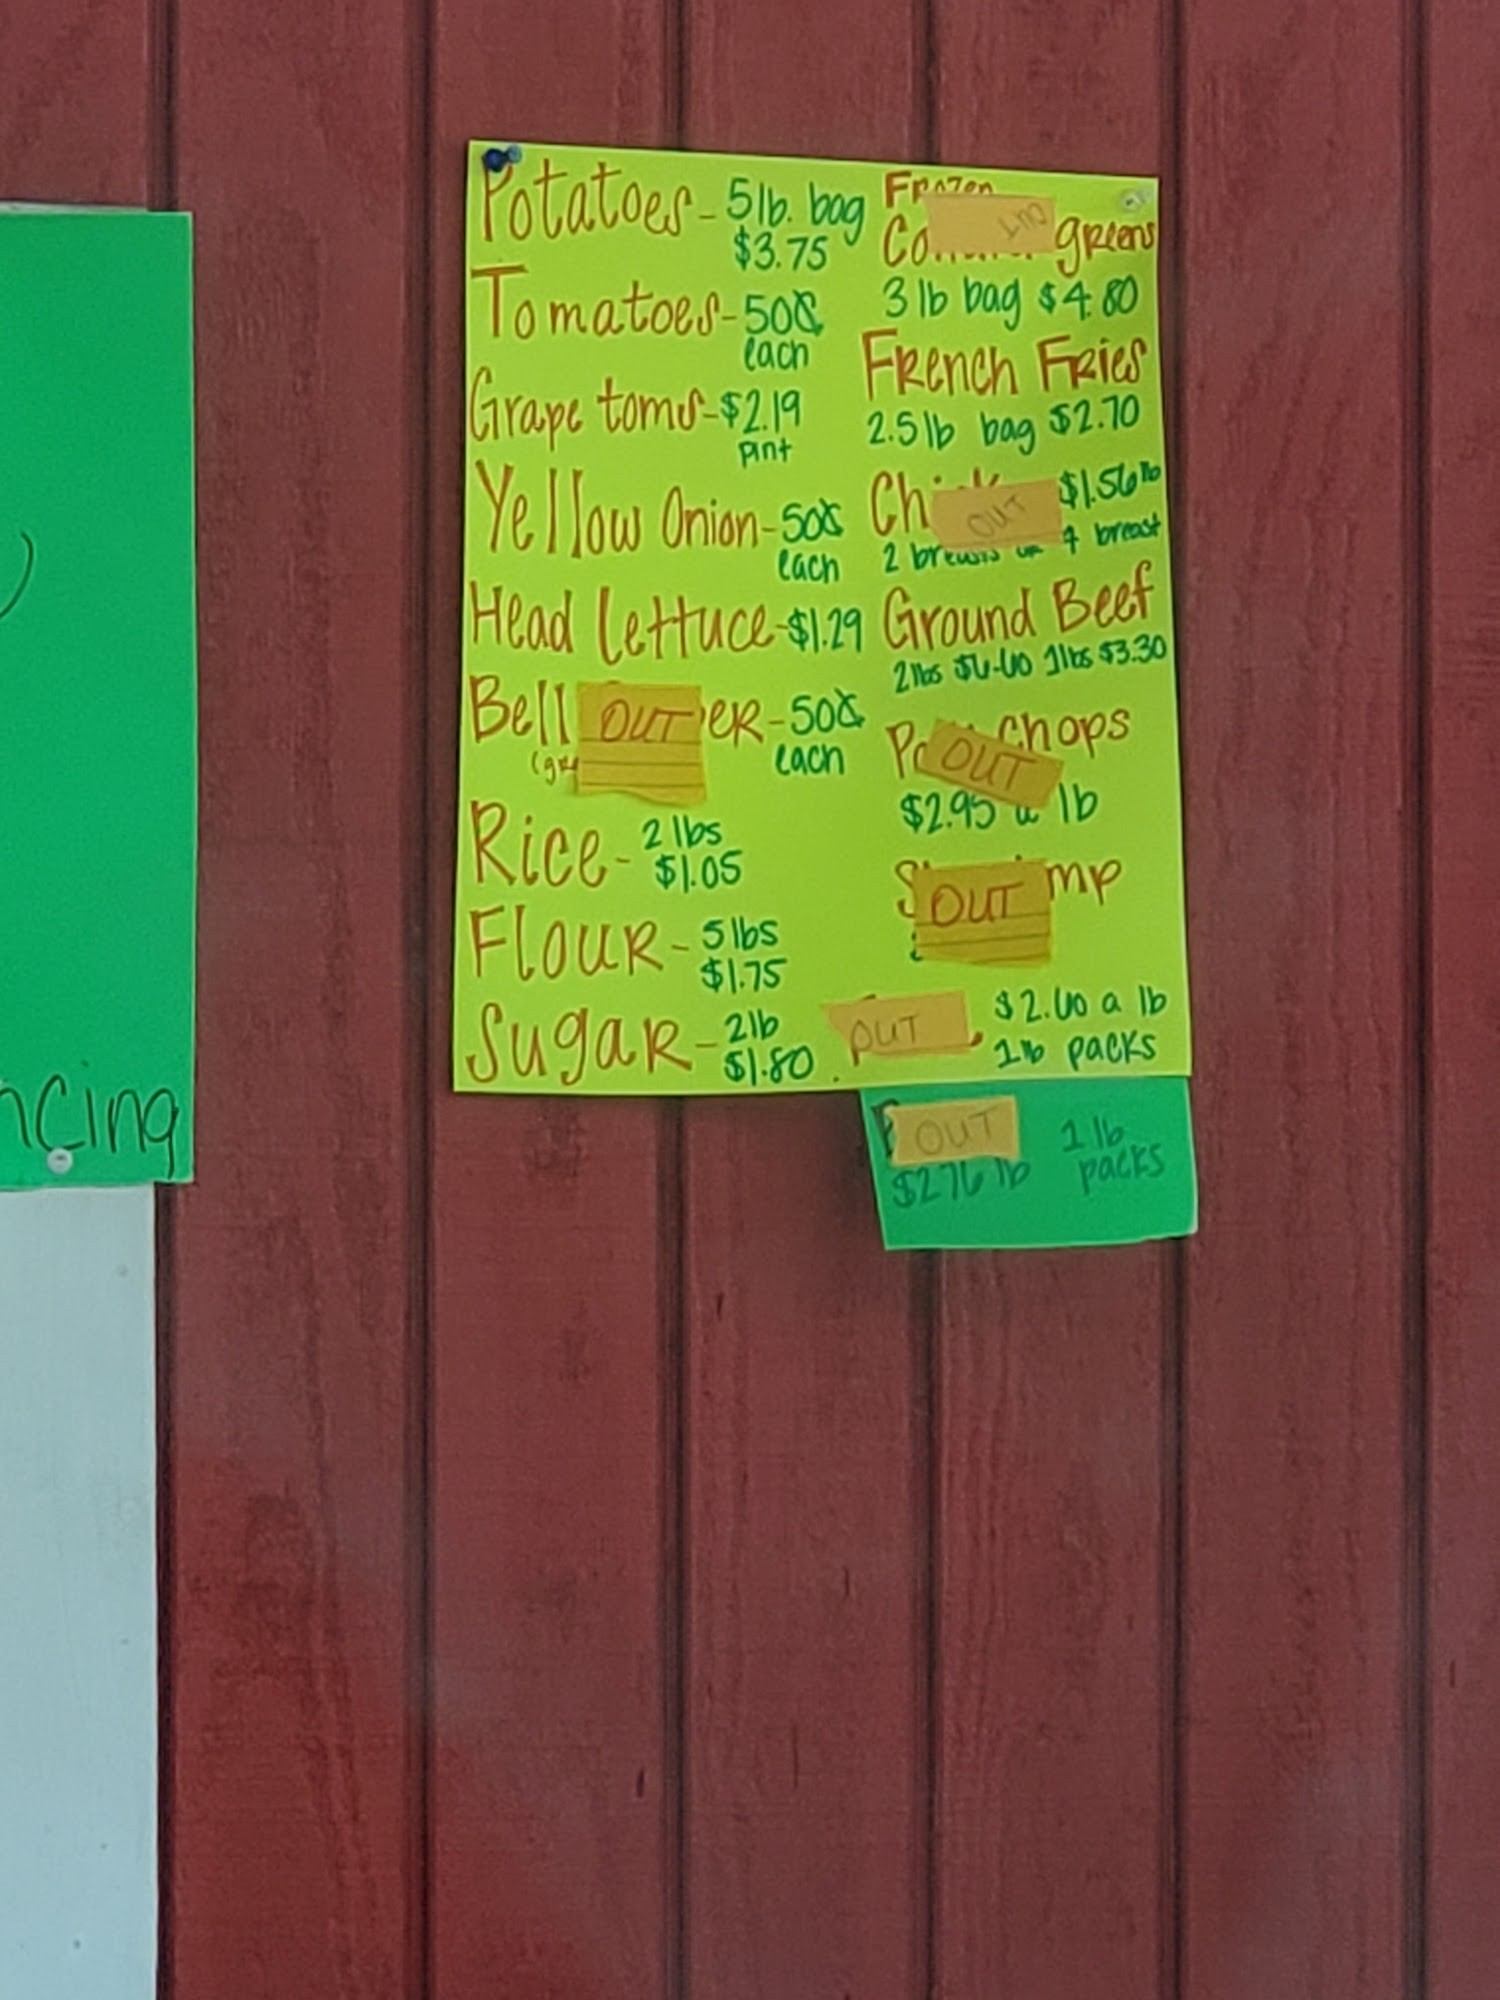 Potatoes - 5 lb. bag
$3.75
Tomatoes - 50¢
each
Grape toms - $2.19
pint
Yellow Onion - 50¢
each
Head lettuce - $1.29
Bell OUT ER - 50¢
each
Rice - 2 lbs
$1.05
Flour - 5 lbs
$1.75
Sugar - 2 lb
$1.80
Frozen
OUT greens
3 lb bag $4.80
French Fries
2.5 lb bag $2.70
OUT $1.56 lb
2 breasts or 4 breast
Ground Beef
2 lbs $6.60 1 lbs $3.30
OUT Chops
$2.95 a lb
OUT mp
OUT $2.60 a lb
1 lb packs
OUT 1 lb
$2.76 lb packs
ncing